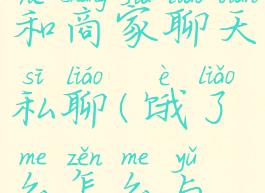 和商家聊天
sī liáo è liǎo
私聊(饿了
me zěn me yǔ
么怎么与